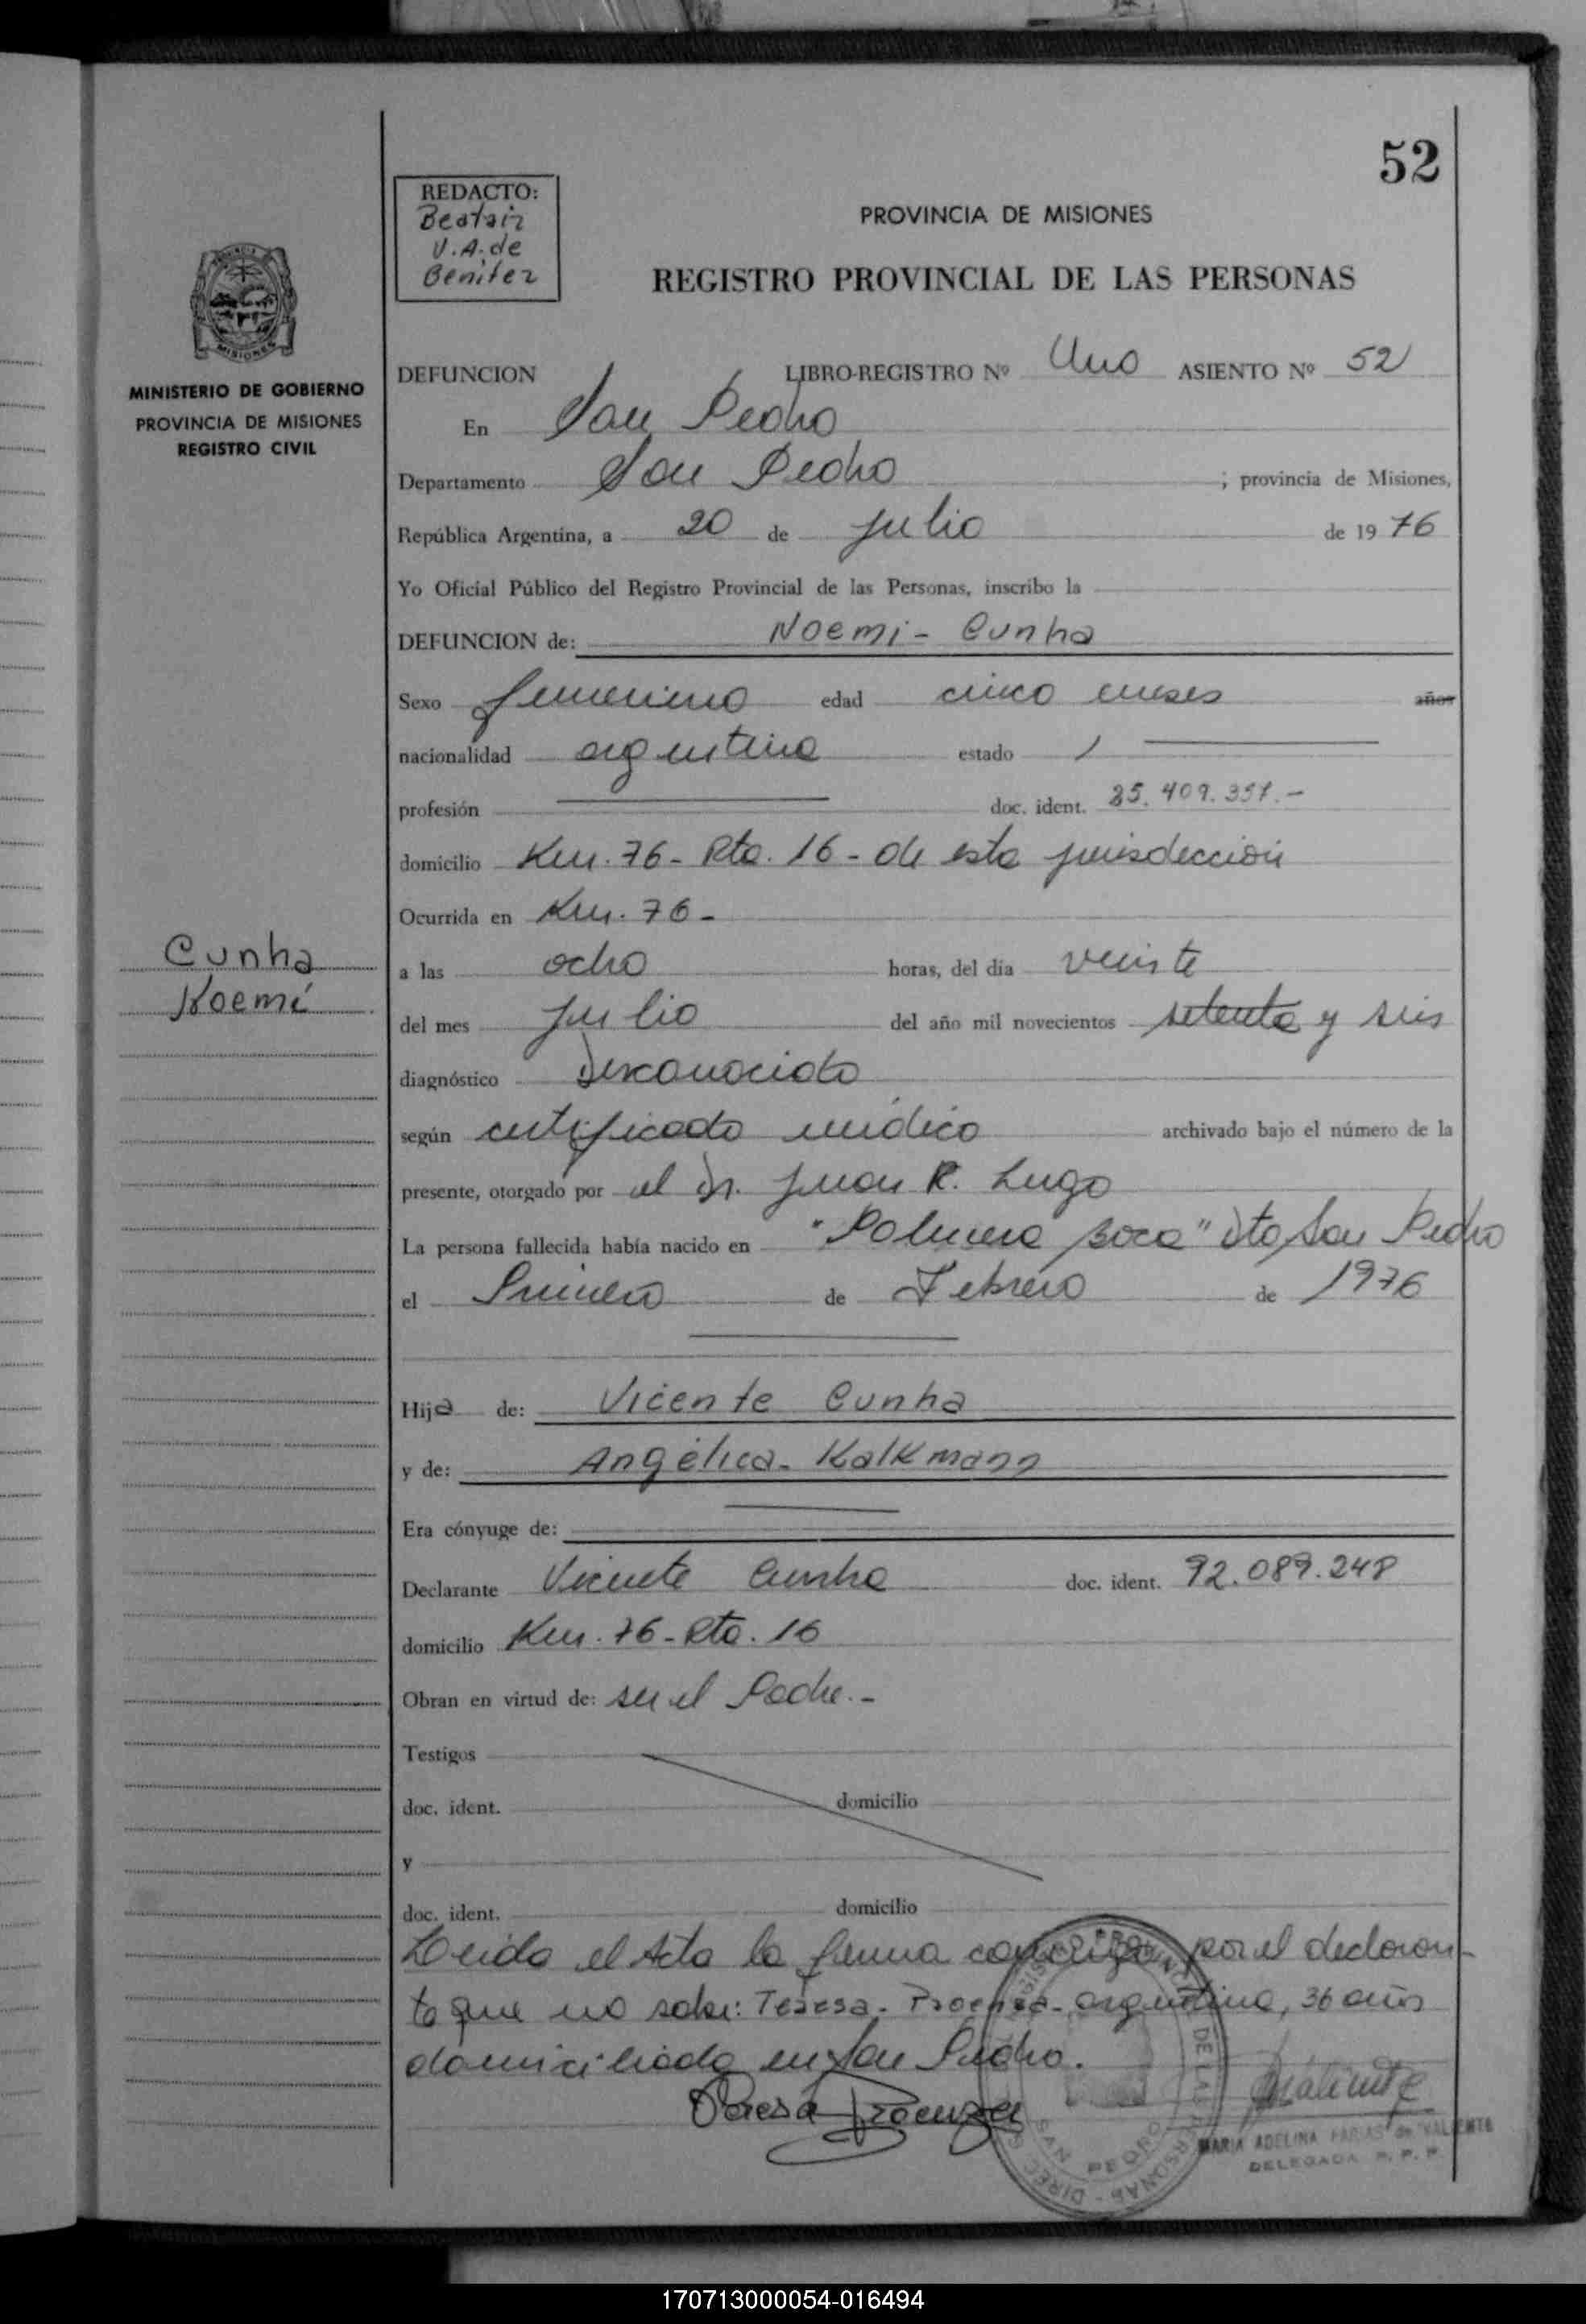 52
REDACTO:
Beatriz
V.A. de
Benitez
PROVINCIA DE MISIONES
REGISTRO PROVINCIAL DE LAS PERSONAS
MISIONES
MINISTERIO DE GOBIERNO
PROVINCIA DE MISIONES
REGISTRO CIVIL
DEFUNCION LIBRO-REGISTRO Nº Uno ASIENTO Nº 52
En San Pedro
Departamento San Pedro ; provincia de Misiones,
República Argentina, a 20 de julio de 1976
Yo Oficial Público del Registro Provincial de las Personas, inscribo la
DEFUNCION de: Noemi - Cunha
Sexo femenino edad cinco meses años
nacionalidad argentina estado
profesión doc. ident. 25.409.351.-
domicilio Km. 76 - Rta. 16 - de esta jurisdección
Ocurrida en Km. 76 -
Cunha
Noemí
a las ocho horas, del día veinte
del mes julio del año mil novecientos setenta y seis
diagnóstico Desconocido
según certificado médico archivado bajo el número de la
presente, otorgado por el Dr. Juan R. Lugo
La persona fallecida había nacido en "Palmera Boca" Dto San Pedro
el Primero de Febrero de 1976
Hija de: Vicente Cunha
y de: Angélica - Kalkmann
Era cónyuge de:
Declarante Vicente Cunha doc. ident. 92.089.248
domicilio Km. 76 - Rta. 16
Obran en virtud de: ser el Padre. -
Testigos
doc. ident. domicilio
y
doc. ident. domicilio
Leida el Acta la firma conmigo por el declaran-
te que no sabe: Teresa - Proenza - argentina, 36 años
domiciliada en San Pedro.
Teresa Proenza
Valiente
MARIA ADELINA FARIAS de VALIENTE
DELEGADA R. P. P.
SAN PEDRO
170713000054-016494